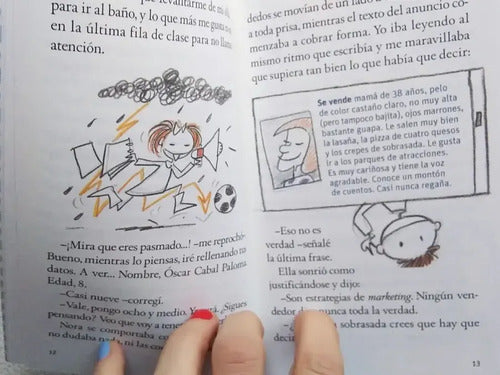 levantarme de mi
para ir al baño, y lo que más me gusta
en la última fila de clase para no lla
atención.
–¡Mira que eres pasmado...! –me reprochó
Bueno, mientras lo piensas, iré rellenando
datos. A ver... Nombre, Óscar Cabal Paloma.
Edad, 8.
–Casi nueve –corregí.
–Vale, pongo ocho y medio. ¿Sigues
pensando? Veo que voy a tene
Nora se comportaba co
no dudaba nada, ni las co
12
dedos se movían de un lado a
a toda prisa, mientras el texto del anuncio co-
menzaba a cobrar forma. Yo iba leyendo al
mismo ritmo que escribía y me maravillaba
que supiera tan bien lo que había que decir:
Se vende mamá de 38 años, pelo
de color castaño claro, no muy alta
(pero tampoco bajita), ojos marrones,
bastante guapa. Le salen muy bien
la lasaña, la pizza de cuatro quesos
y los crepes de sobrasada. Le gusta
ir a los parques de atracciones.
Es muy cariñosa y tiene la voz
agradable. Conoce un montón
de cuentos. Casi nunca regaña.
–Eso no es
verdad –señalé
la última frase.
Ella sonrió como
justificándose y dijo:
–Son estrategias de marketing. Ningún ven-
dedor da nunca toda la verdad.
sobrasada crees que hay que
decia
13